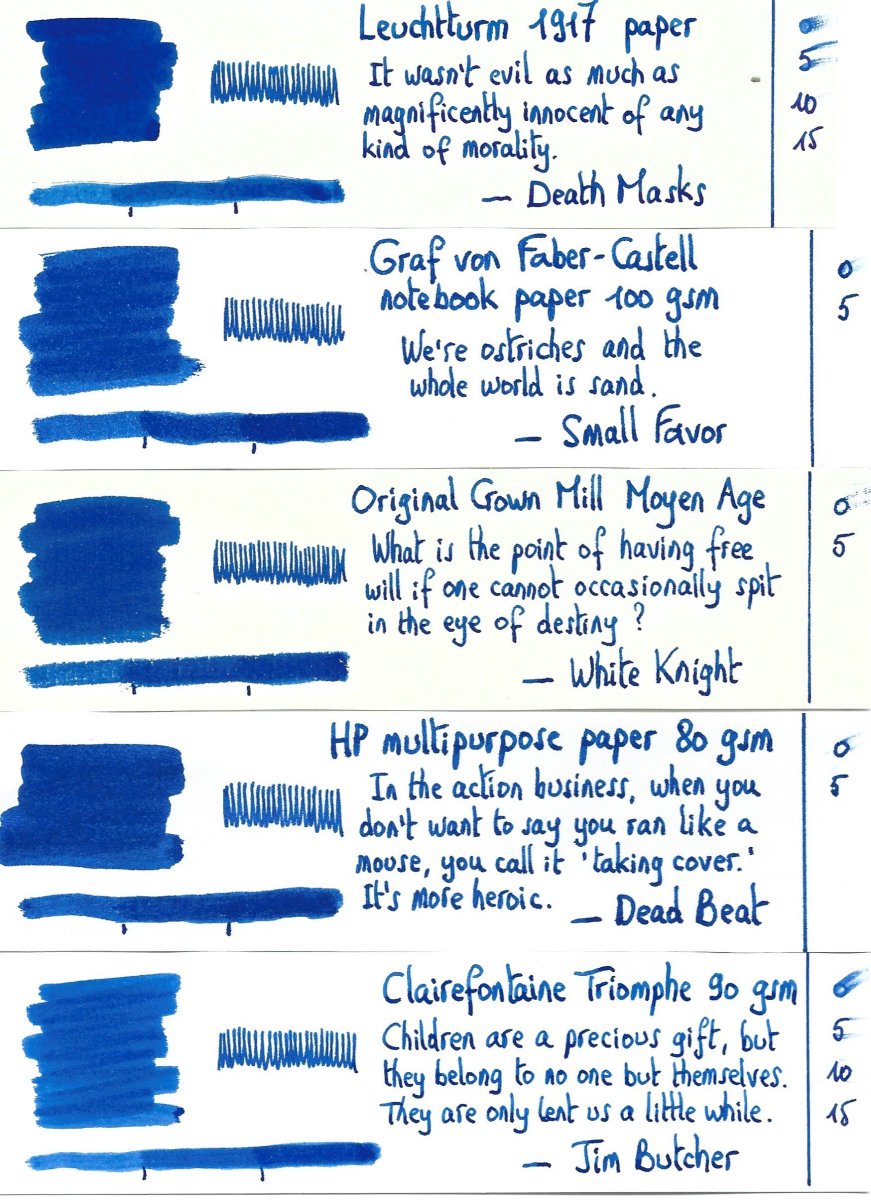 Leuchtturm 1917 paper
It wasn't evil as much as
magnificently innocent of any
kind of morality.
— Death Masks
0
5
10
15
Graf von Faber-Castell
notebook paper 100 gsm
We're ostriches and the
whole world is sand.
— Small Favor
0
5
Original Crown Mill Moyen Age
What is the point of having free
will if one cannot occasionally spit
in the eye of destiny?
— White Knight
0
5
HP multipurpose paper 80 gsm
In the action business, when you
don't want to say you ran like a
mouse, you call it 'taking cover.'
It's more heroic.
— Dead Beat
0
5
Clairefontaine Triomphe 90 gsm
Children are a precious gift, but
they belong to no one but themselves.
They are only lent us a little while.
— Jim Butcher
0
5
10
15